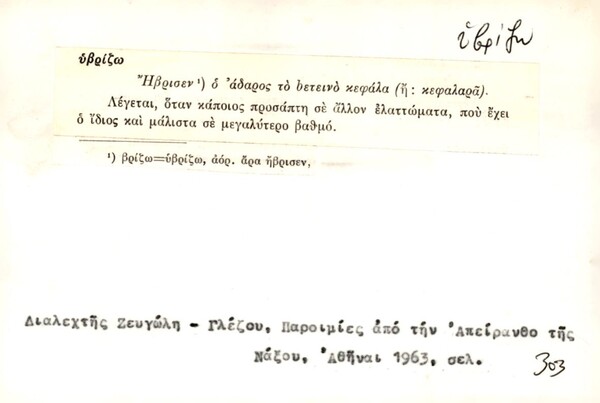 ὑβρίζω
ὑβρίζω
Ἤβρισεν¹) ὁ ἄδαρος τὸ βετεινὸ κεφάλα (ἤ: κεφαλαρᾶ).
Λέγεται, ὅταν κάποιος προσάπτη σὲ ἄλλον ἐλαττώματα, ποὺ ἔχει
ὁ ἴδιος καὶ μάλιστα σὲ μεγαλύτερο βαθμό.
¹) βρίζω=ὑβρίζω, ἀόρ. ἄρα ἤβρισεν,
Διαλεχτῆς Ζευγώλη - Γλέζου, Παροιμίες ἀπό τήν Ἀπείρανθο τῆς
Νάξου, Ἀθῆναι 1963, σελ. 303